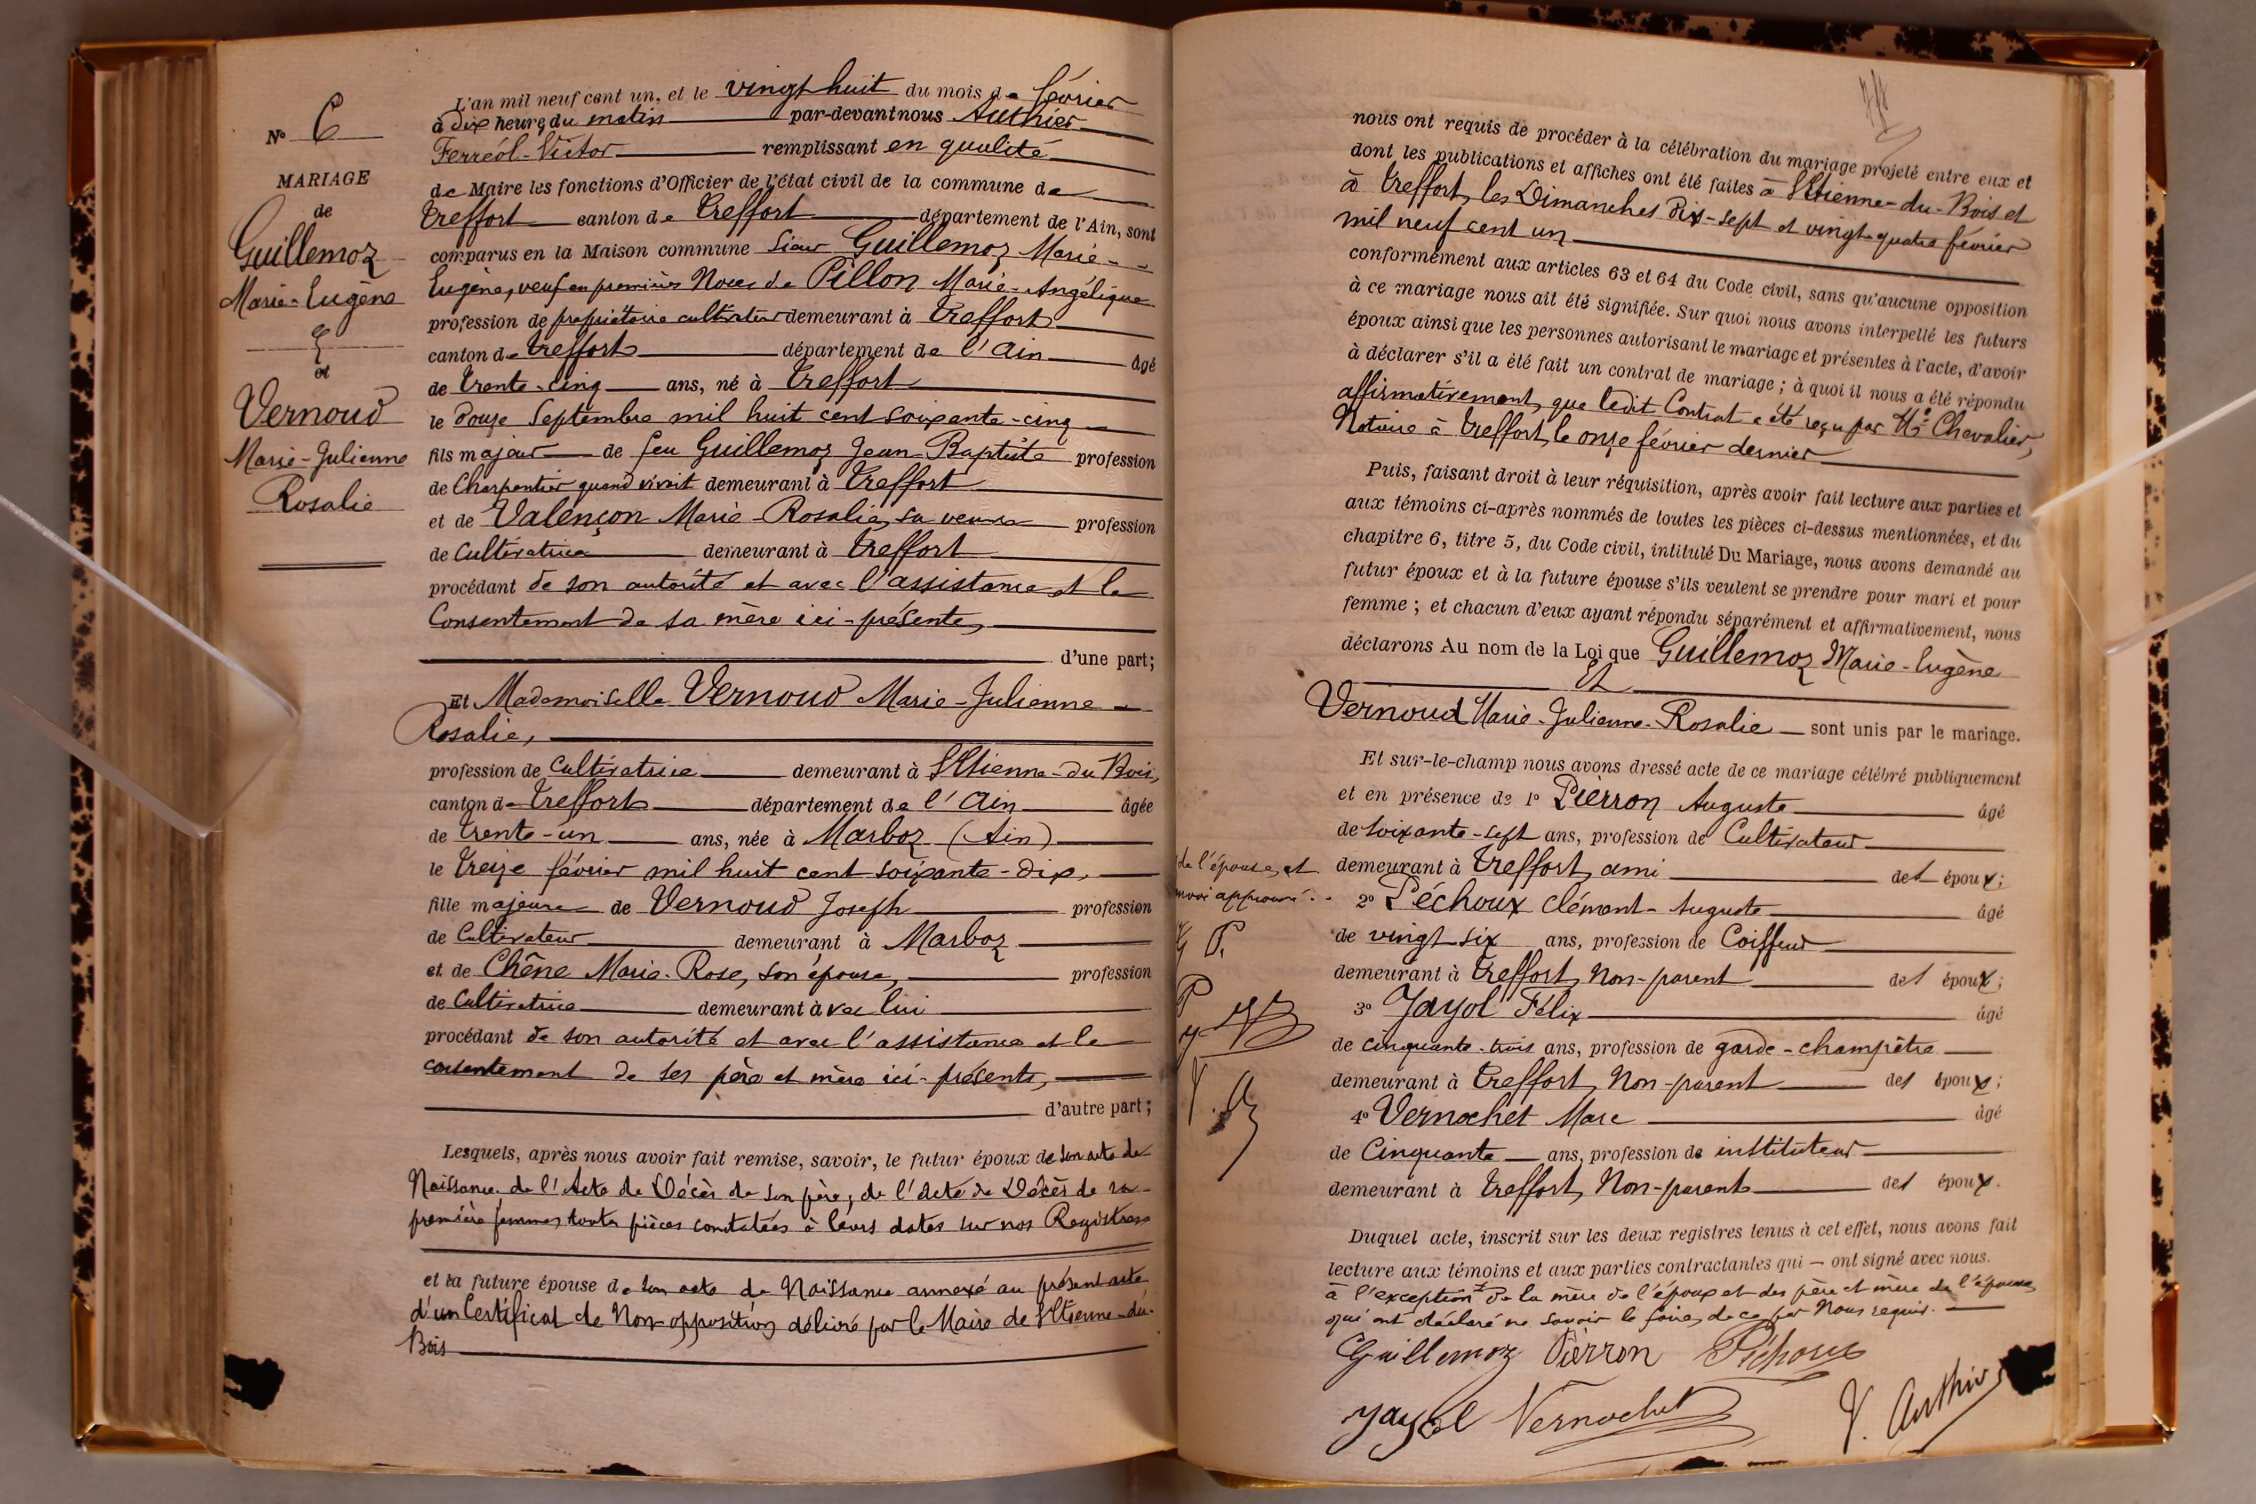 N° 6
MARIAGE
de
Guillemoz
Marie-Eugène
et
Vernoud
Marie-Julienne
Rosalie
L'an mil neuf cent un, et le vingt huit du mois de février
à dix heures du matin par-devant nous Authier
Ferréol-Victor remplissant en qualité
de Maire les fonctions d'Officier de l'état civil de la commune de
Treffort canton de Treffort département de l'Ain, sont
comparus en la Maison commune sieur Guillemoz Marie-
Eugène, veuf en premières Noces de Pillon Marie-Angélique
profession de propriétaire cultivateur demeurant à Treffort
canton de Treffort département de l'Ain âgé
de trente-cinq ans, né à Treffort
le douze Septembre mil huit cent soixante-cinq
fils majeur de feu Guillemoz Jean Baptiste profession
de Charpentier quand vivait demeurant à Treffort
et de Valençon Marie-Rosalie, sa veuve profession
de Cultivatrice demeurant à Treffort
procédant de son autorité et avec l'assistance et le
Consentement de sa mère ici-présente,
d'une part;
Et Mademoiselle Vernoud Marie-Julienne
Rosalie,
profession de Cultivatrice demeurant à St Etienne-du Bois,
canton de Treffort département de l'Ain âgée
de trente-un ans, née à Marboz (Ain)
le treize février mil huit cent soixante-dix,
fille majeure de Vernoud Joseph profession
de Cultivateur demeurant à Marboz
et de Chêne Marie-Rose, son épouse, profession
de Cultivatrice demeurant avec lui
procédant de son autorité et avec l'assistance et le
consentement de ses père et mère ici-présents,
d'autre part;
Lesquels, après nous avoir fait remise, savoir, le futur époux de son acte de
Naissance, de l'Acte de Décès de son père, de l'Acte de Décès de sa
première femme, toutes pièces constatées à leurs dates sur nos Registres
et la future épouse de son acte de Naissance annexé au présent acte
d'un Certificat de Non-opposition délivré par le Maire de St Etienne-du-
Bois
nous ont requis de procéder à la célébration du mariage projeté entre eux et
dont les publications et affiches ont été faites à St Etienne-du-Bois et
à Treffort, les Dimanches Dix-sept et vingt-quatre février
mil neuf cent un
conformément aux articles 63 et 64 du Code civil, sans qu'aucune opposition
à ce mariage nous ait été signifiée. Sur quoi nous avons interpellé les futurs
époux ainsi que les personnes autorisant le mariage et présentes à l'acte, d'avoir
à déclarer s'il a été fait un contrat de mariage ; à quoi il nous a été répondu
affirmativement, que ledit Contrat a été reçu par Me Chevalier,
Notaire à Treffort, le onze février dernier
Puis, faisant droit à leur réquisition, après avoir fait lecture aux parties et
aux témoins ci-après nommés de toutes les pièces ci-dessus mentionnées, et du
chapitre 6, titre 5, du Code civil, intitulé Du Mariage, nous avons demandé au
futur époux et à la future épouse s'ils veulent se prendre pour mari et pour
femme ; et chacun d'eux ayant répondu séparément et affirmativement, nous
déclarons Au nom de la Loi que Guillemoz Marie-Eugène
Et
Vernoud Marie-Julienne-Rosalie sont unis par le mariage.
Et sur-le-champ nous avons dressé acte de ce mariage célébré publiquement
et en présence de 1° Pierron Auguste âgé
de soixante-sept ans, profession de Cultivateur
demeurant à Treffort, ami des époux;
2° Péchoux Clément-Auguste âgé
de vingt six ans, profession de Coiffeur
demeurant à Treffort, Non-parent des époux;
3° Jayol Félix âgé
de cinquante-trois ans, profession de garde-champêtre
demeurant à Treffort, Non-parent des époux;
4° Vernochet Marc âgé
de Cinquante ans, profession de instituteur
demeurant à Treffort, Non-parent des époux.
Duquel acte, inscrit sur les deux registres tenus à cet effet, nous avons fait
lecture aux témoins et aux parties contractantes qui — ont signé avec nous.
à l'exception de la mère de l'époux et des père et mère de l'épouse
qui ont déclaré ne savoir le faire, de ce par Nous requis.
de l'épouse, et
approuvé.
G P.
Guillemoz Pierron Péchoux
Jayol Vernochet V. Authier